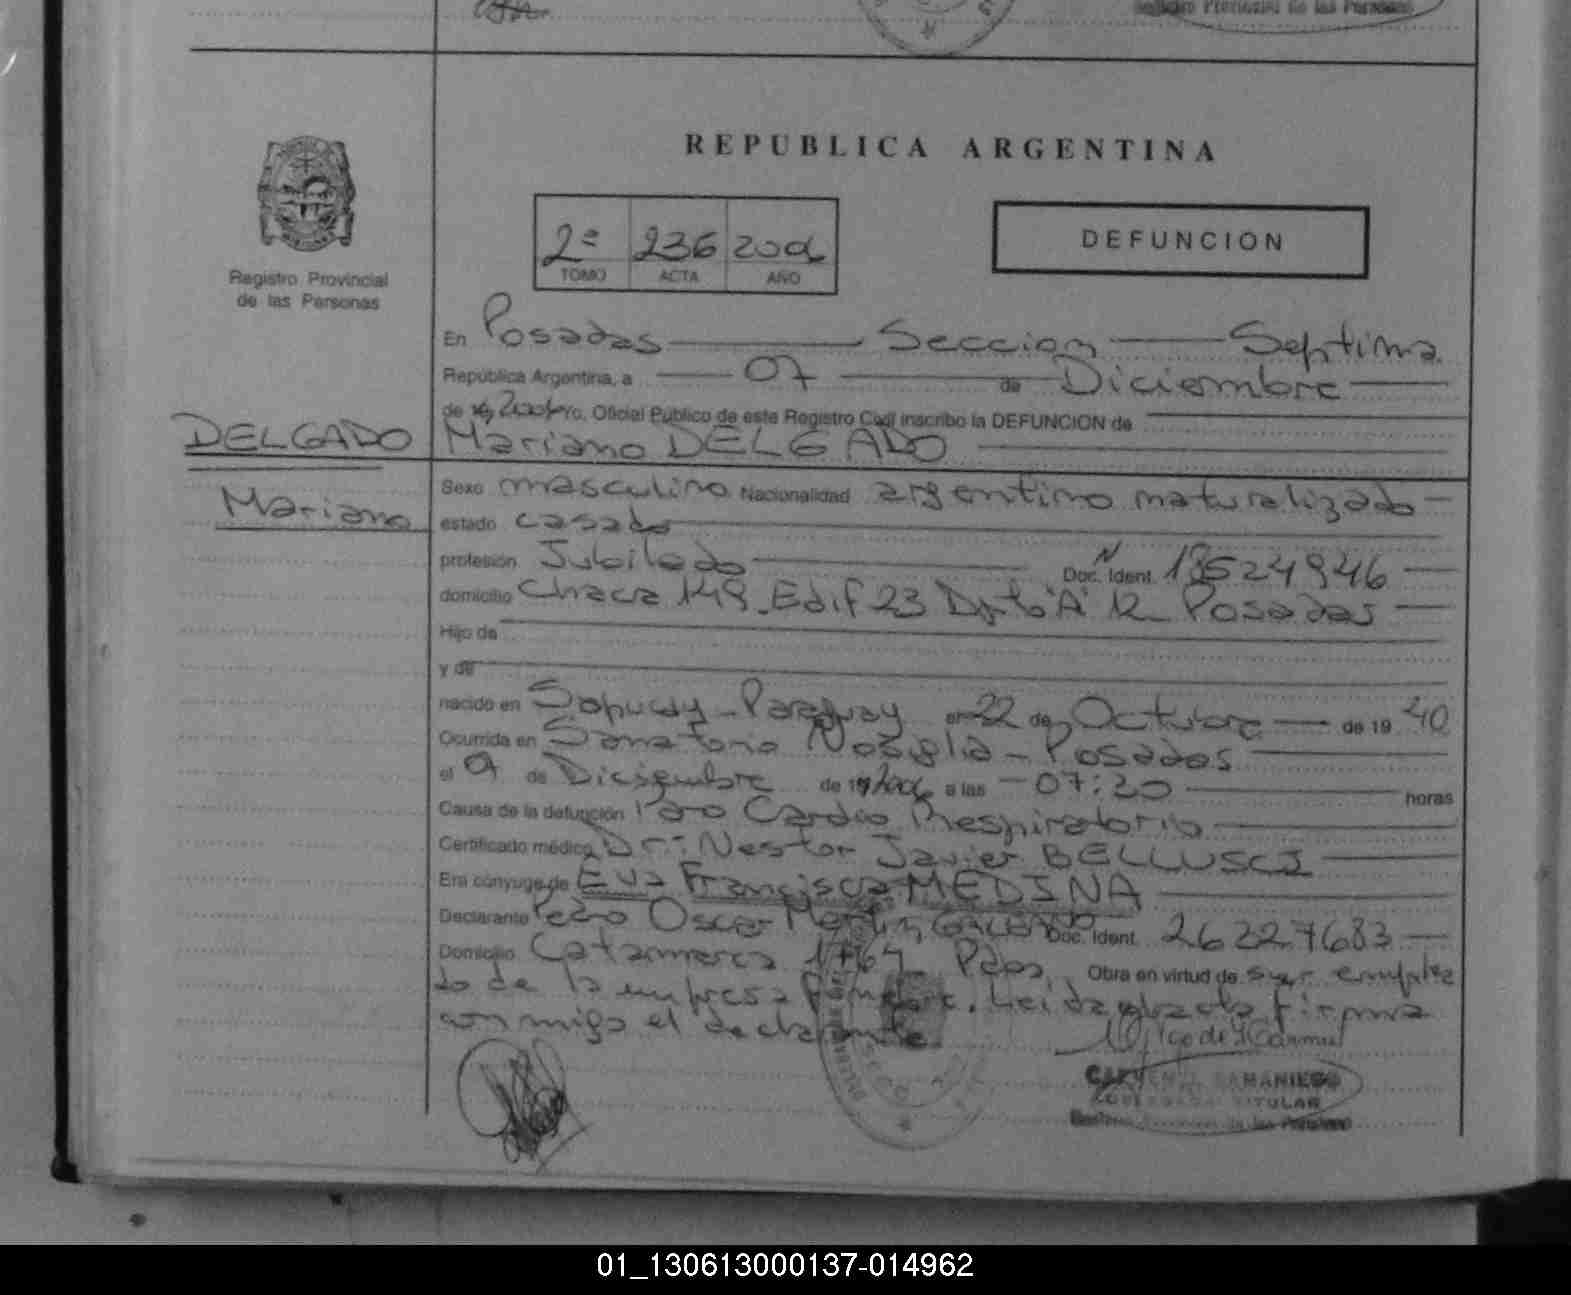 Registro Provincial de las Personas
REPUBLICA ARGENTINA
2ª 236 2006
TOMO ACTA AÑO
DEFUNCION
Registro Provincial
de las Personas
En Posadas Seccion Septima
República Argentina, a 07 de Diciembre
de 19 2006 Yo, Oficial Público de este Registro Civil inscribo la DEFUNCION de
DELGADO Mariano DELGADO
Mariano
Sexo masculino Nacionalidad argentino naturalizado
estado casado
profesión Jubilado Doc. Ident. N 18524946
domicilio Chacra 149 - Edif 23 Dpto "A" 12 Posadas
Hijo de
y de
nacido en Sapucay - Paraguay en 22 de Octubre de 19 40
Ocurrida en Sanatorio Nosiglia - Posadas
el 07 de Diciembre de 19 2006 a las 07:20 horas
Causa de la defunción Paro Cardio Respiratorio
Certificado médico Dr: Nestor Javier BELLUSCI
Era cónyuge de Eva Francisca MEDINA
Declarante Pedro Oscar Martin Doc. Ident. 26227683
Domicilio Catamarca 1767 Pdas. Obra en virtud de ser emplea
do de la empresa Leida el acta firma
conmigo el declarante.
CARMEN SAMANIEGO
TITULAR
de las Personas
01_130613000137-014962